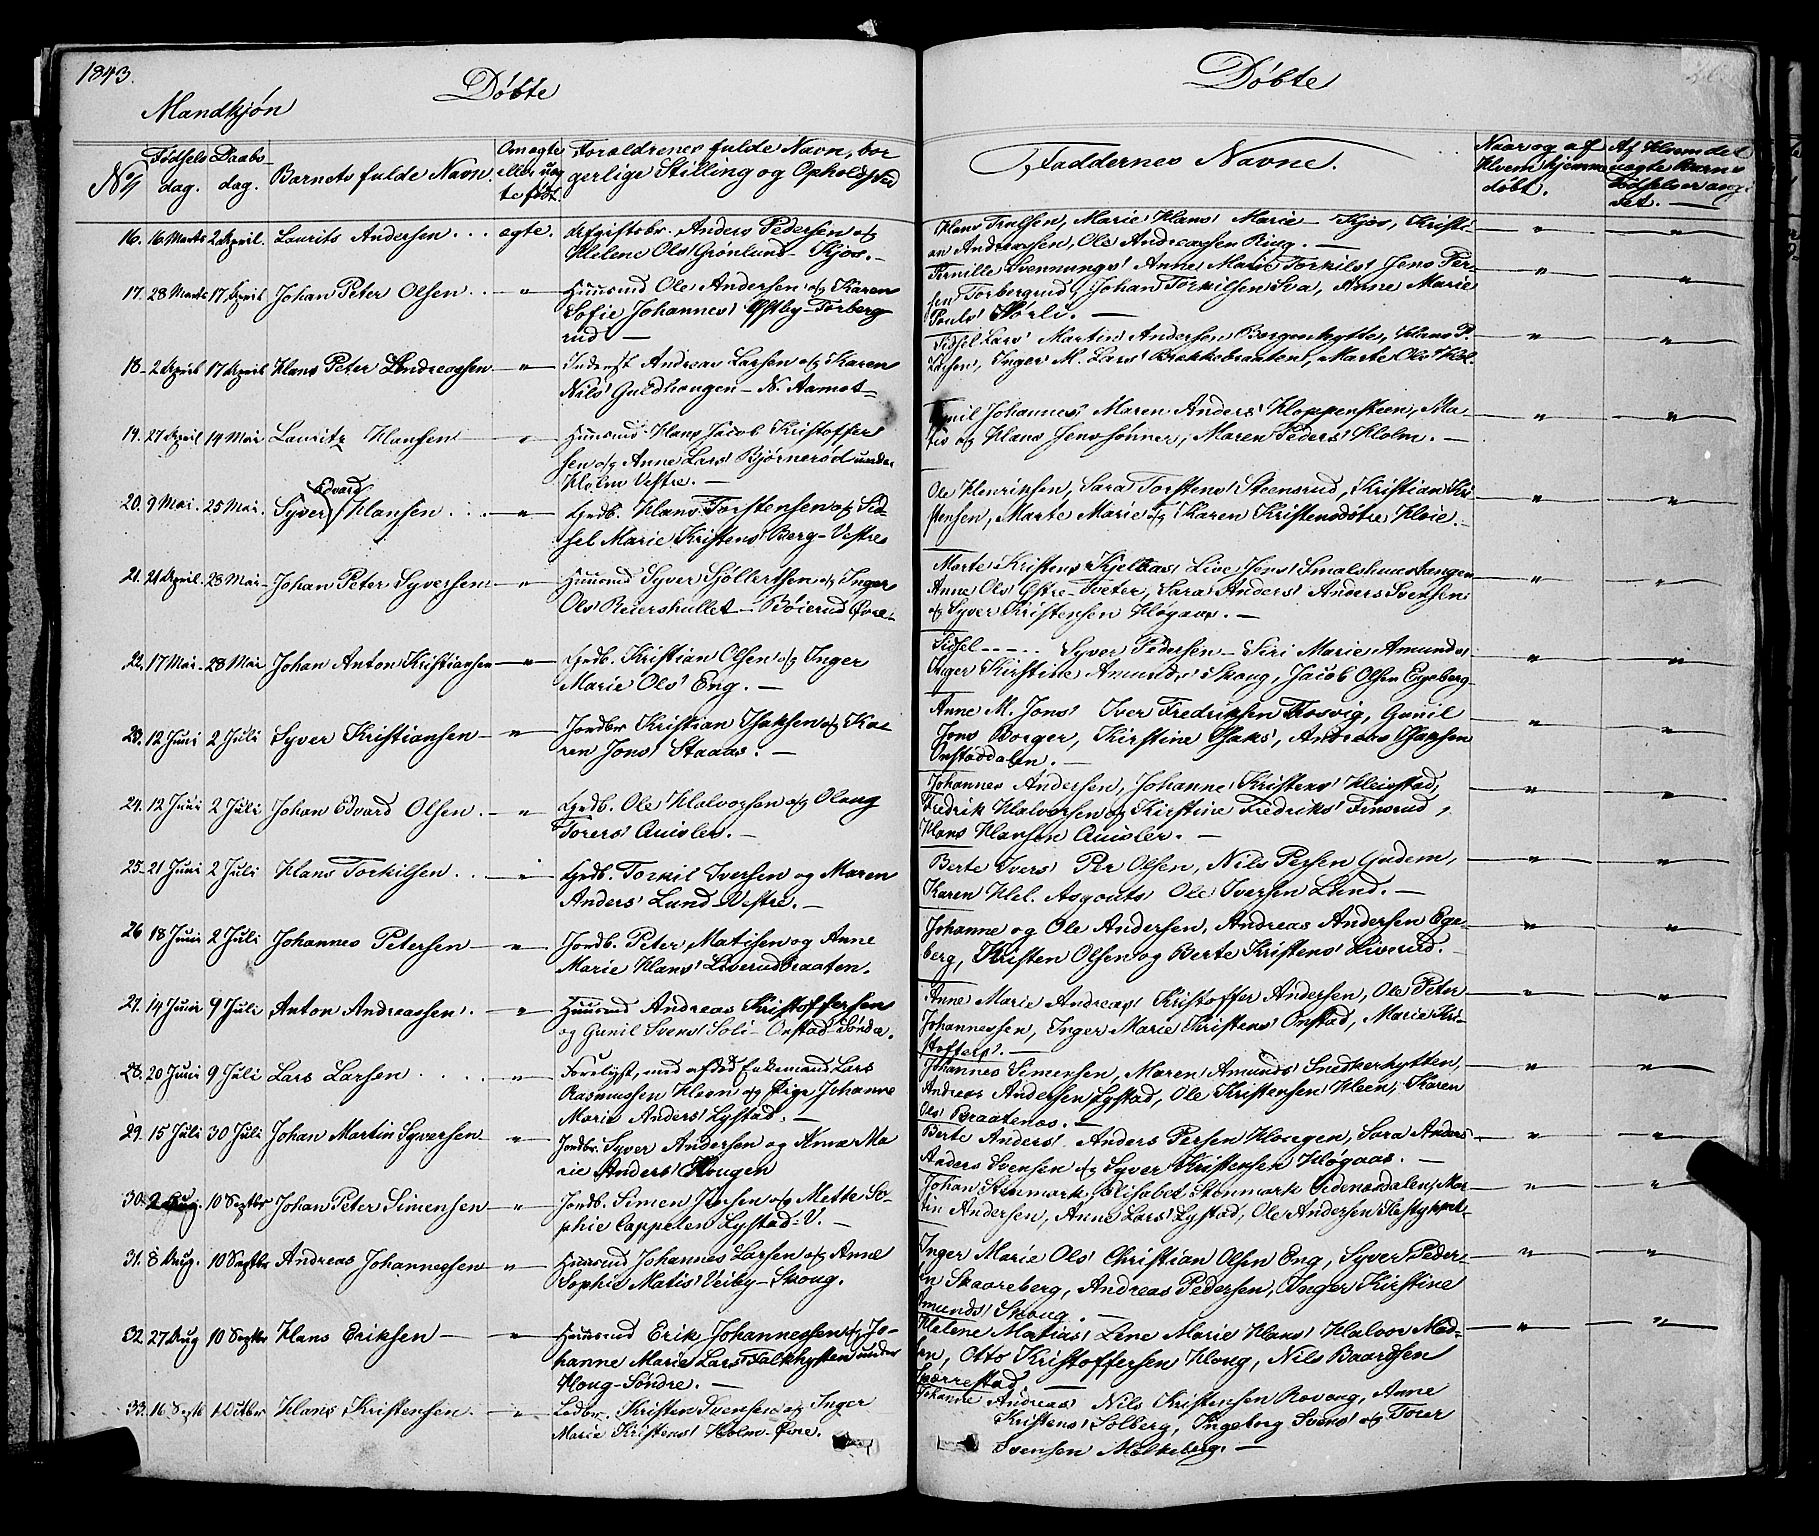 1843.
Døbte
Mandkjøn
No
Fødsels dag.
Daabs- dag.
Barnets fulde Navn.
Om ægte eller uæg te født.
Forældrenes fulde Navn, bor
gerlige Stilling og Opholdsted
16. 16 Marts 2 April. Laurits Andersen . . . ægte. Afgiftsbr. Anders Pedersen og
Helene Ols' Grønlund - Kjos. —
17. 28 Marts 17 April Johan Peter Olsen . . " Huusmd Ole Andersen og Karen
Sofie Johannes' Østby - Torberg-
rud —
18. 2 April 17 April Hans Peter Andreassen — " — Inderst Andreas Larsen og Karen
Nils' Guldhaugen - N. Aamot —
19. 27 April 14 Mai Lauritz Hansen " Huusmd Hans Jacob Kristoffer
sen og Anne Lars' Bjørnerød under
Holm Vestre. —
20. 9 Mai. 25 Mai. Syver Edvard Hansen . . . " Grdb. Hans Torstensen og Sid-
sel Marie Kristens' Berg - Vestre
21. 21 April. 28 Mai — Johan Peter Syversen " Huusmd Syver Sjöllertsen og Inger
Ols' Reiershullet — Bøierud Øvre —
22. 17 Mai. 28 Mai Johan Anton Kristiansen — " — Grdb. Kristian Olsen og Inger
Marie Ols' Eng. —
23. 12 Juni 2 Juli Syver Kristiansen — " — Jordbr Kristian Isaksen og Ka-
ren Jons' Staaas. —
24. 12 Juni 2 Juli Johan Edvard Olsen . — " — Grdb. Ole Halvorsen og Oloug
Torers' Quisler. —
25. 21 Juni 2 Juli Hans Torkilsen . . . " Grdb. Torkil Iversen og Maren
Anders' Lund - Vestre. —
26 18 Juni 2 Juli Johannes Petersen — " — Jordb. Peter Matisen og Anne
Marie Hans' Liverudbraaten.
27. 14 Juni 9 Juli Anton Andreassen . — " — Huusmd Andreas Kristoffersen
og Gunil Svens' Soli - Onstad - Søndre.
28. 20 Juni 9 Juli Lars Larsen . . . . " Foreligst, med afdød Enkemand Lars
Rasmussen Kleen og Pige Johanne
Marie Anders' Lystad. —
29. 15 Juli 30 Juli Johan Martin Syversen — " — Jordbr. Syver Andersen og Anne Ma
rie Anders' Hougen
30. 2 Aug. 10 Septbr Johan Peter Simensen — " — Jordb. Simen Jensen og Mette So-
phie Cappelen Lystad - V. —
31. 8 Aug. 10 Septbr Andreas Johannessen " Huusmd Johannes Larsen og Anne
Sophie Matis' Veiby - Skoug.
32 27 Aug 10 Septbr Hans Eriksen — " — Huusmd Erik Johannessen og Jo-
hanne Marie Lars' Falkhytten under
Houg - Søndre. —
33. 16 Sept 1 Octbr Hans Kristensen . — " — Ledbr. Kristen Svensen og Inger
Marie Kristens' Holm - Øvre.
Døbte
Faddernes Navne.
Naar og af
Hvem hjemme
døbt.
Af Hvem det
uægte Barns
Fødsel er angi
vet. —
Hans Truelsen, Marie Hans' Marie — Kjos, Kristi-
an Andreassen, Ole Andreassen Ring. —
Pernille Svennungs' Anne Marie Torkils' Jens Per-
sen Torbergrud, Johan Torkilsen Lia, Anne Marie
Pouls' Hørli. —
Sidsel Lars' Martin Andersen Borgenhytte, Hans P.
Larsen, Inger M. Lars' Bakkebraaten, Marte Ols' Hol.
Gunil Johannes' Maren Anders' Kloppensteen, Ma
tis og Hans Jenssønner, Maren Peders' Holm. —
Ole Henriksen, Sara Torstens' Steensrud, Kristian Kri
stensen, Marte Marie og Karen Kristensdøtre Hoie.
Marte Kristens' Kjelsaas Live Jens' Smalshuushaugen
Anne Ols' Østre - Tveter, Sara Anders' Anders Svensen
og Syver Kristensen Høgaas. —
Sidsel - - - - Syver Pedersen — Siri Marie Amunds'
Inger Kirstine Amunds' Skoug, Jacob Olsen Egeberg
Anne M. Jons' Iver Fredriksen Fosvig, Gunil
Jons' Borger, Kirstine Isaks', Andreas Isaksen
Onstaddalen. —
Johannes Andersen, Johanne Kristens' Kleivstad,
Fredrik Halvorsen og Kirstine Fredriks' Finsrud,
Hans Hansen Quisler. —
Berte Ivers' Per Olsen, Nils Persen Gudem,
Karen Hel. Asgouts' Ole Iversen Lund. —
Johanne og Ole Andersen, Andreas Andersen Ege-
berg, Kristen Olsen og Berte Kristens' Liverud.
Anne Marie Andreas' Kristoffer Andersen, Ole Peter
Johannessen, Inger Marie Kristens' Onstad, Marie Kri-
stoffers'. —
Johannes Simensen, Maren Amunds' Snekkerhytten,
Andreas Andersen Lystad, Ole Kristensen Kleen, Karen
Ols' Braatenos. —
Berte Anders'. Anders Persen Hougen, Sara Anders'
Anders Svensen og Syver Kristensen Høgaas. —
Johan Stenmark, Elisabet Stenmark Sidensdalen, Mar-
tin Andersen, Anne Lars' Lystad, Ole Andersen
Inger Marie Ols' Christian Olsen Eng, Syver Peder-
sen Skaareberg, Andreas Pedersen, Inger Kirstine
Amunds' Skoug. —
Helene Matias' Lene Marie Hans' Halvor Mad-
sen, Otto Kristoffersen Houg, Nils Baardsen
Sperrestad —
Johanne Andreas' Nils Kristensen Rovoug, Anne
Kristens' Solberg, Ingeborg Svens' og Torer
Svensen Melkeberg. —